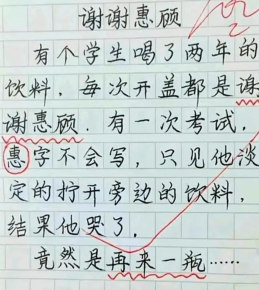 谢谢惠顾
有个学生喝了两年的
饮料，每次开盖都是谢
谢惠顾．有一次考试，
惠字不会写，只见他淡
定的拧开旁边的饮料，
结果他哭了．
竟然是再来一瓶……